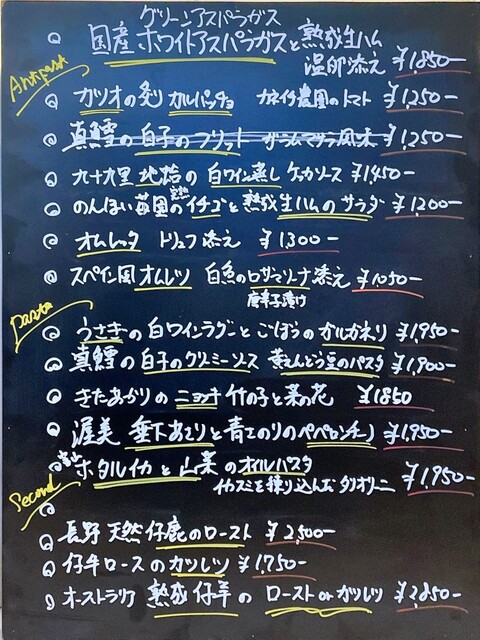 グリーンアスパラガス
国産ホワイトアスパラガスと熟成生ハム
温卵添え ¥1,850-
Antipast
カツオの炙りカルパッチョ カネイチ農園のトマト ¥1,250-
真鱈の白子のフリット ガラムマサラ風味 ¥1,250-
九十九里 地蛤の白ワイン蒸し ケッカソース ¥1,450-
のんほい苺園の完熟イチゴと熟成生ハムのサラダ ¥1,200-
オムレッタ トリュフ添え ¥1,300-
スペイン風オムレツ 白魚のロザマリーナ添え ¥1050-
唐辛子漬け
Pasta
うさぎの白ワインラグーとごぼうのオルカネリ ¥1,950-
真鱈の白子のクリーミーソース 黄えんどう豆のパスタ ¥1,900-
きたあかりのニョッキ 竹の子と菜の花 ¥1850
渥美 垂下あさりと青さのりのペペロンチーノ ¥1,950-
富山ホタルイカと山菜のオイルパスタ
イカスミを練り込んだタリオリーニ ¥1,950-
Second
長野 天然仔鹿のロースト ¥2,500-
仔牛ロースのカツレツ ¥1,750-
オーストラリア 熟成仔羊のロースト or カツレツ ¥2,850-